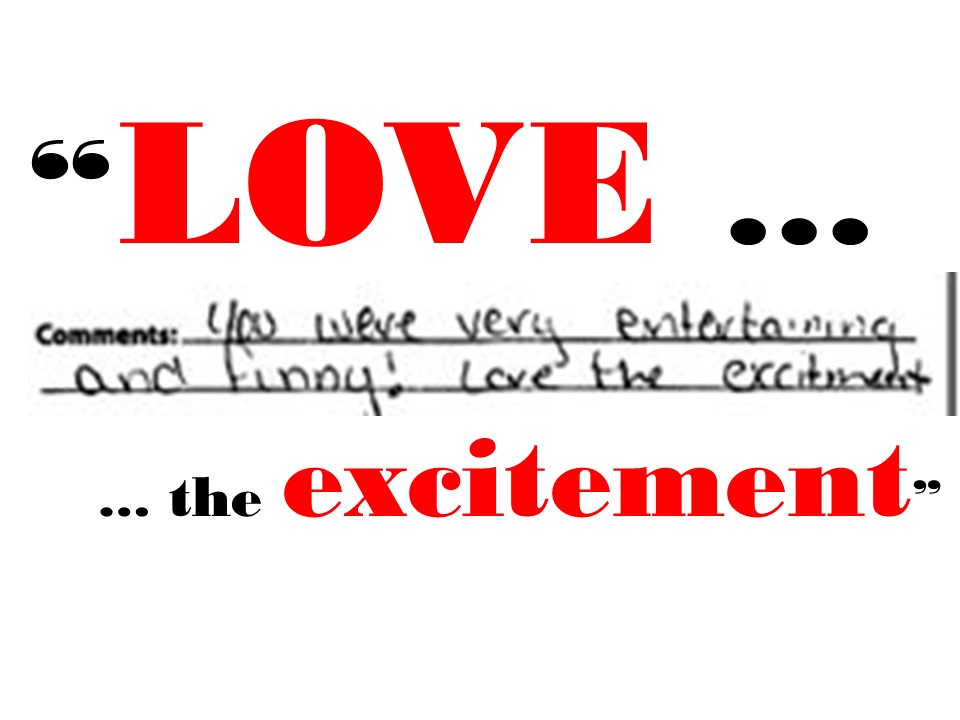 “LOVE ...
Comments: You were very entertaining
and funny! Love the excitment
... the excitement”